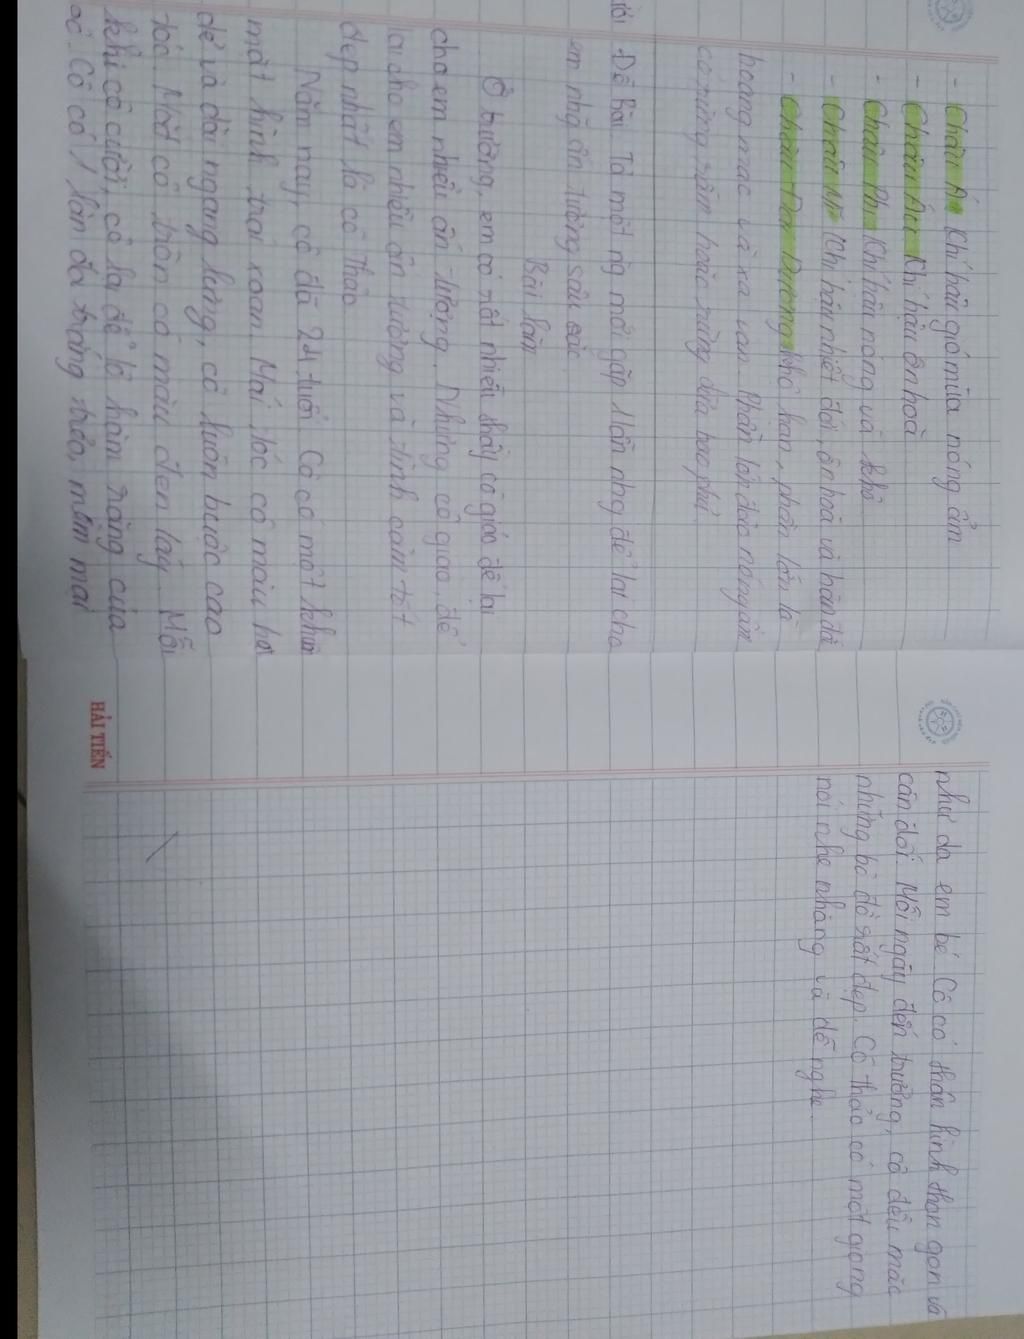 - Châu Á Khí hậu gió mùa nóng ẩm
- Châu Âu Khí hậu ôn hoà
- Châu Phi Khí hậu nóng và khô
- Châu Mĩ Khí hậu nhiệt đới, ôn hoà và hàn đới
- Châu Đại Dương khô hạn, phần lớn là
hoang mạc và xa van. Phần lớn đảo nóng ẩm
có rừng rậm hoặc rừng dừa bao phủ.
Đề Bài Tả một ng mới gặp 1 lần nhg để lại cho
em nhg ấn tượng sâu sắc
Bài làm
Ở trường, em có rất nhiều thầy cô giáo để lại
cho em nhiều ấn tượng. Nhưng cô giáo, để
lại cho em nhiều ấn tượng và tình cảm tốt
đẹp nhất là cô Thảo
Năm nay, cô đã 24 tuổi. Cô có một khuôn
mặt hình trái xoan. Mái tóc cô màu hạt
dẻ và dài ngang lưng, cô luôn buộc cao
tóc. Mắt cô tròn có màu đen láy. Mỗi
khi cô cười, cô lại để lộ hàm răng của
cô. Cô có 1 làn da trắng trẻo, mềm mại
như da em bé. Cô có thân hình thon gọn và
cân đối. Mỗi ngày đến trường, cô đều mặc
những bộ đồ rất đẹp. Cô Thảo có một giọng
nói nhẹ nhàng và dễ nghe.
HẢI TIẾN